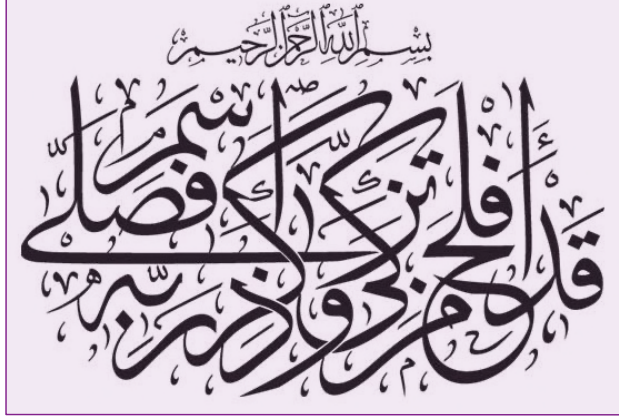 بِسْمِ اللَّهِ الرَّحْمَٰنِ الرَّحِيمِ
قَدْ أَفْلَحَ مَنْ تَزَكَّىٰ وَذَكَرَ اسْمَ رَبِّهِ فَصَلَّىٰ